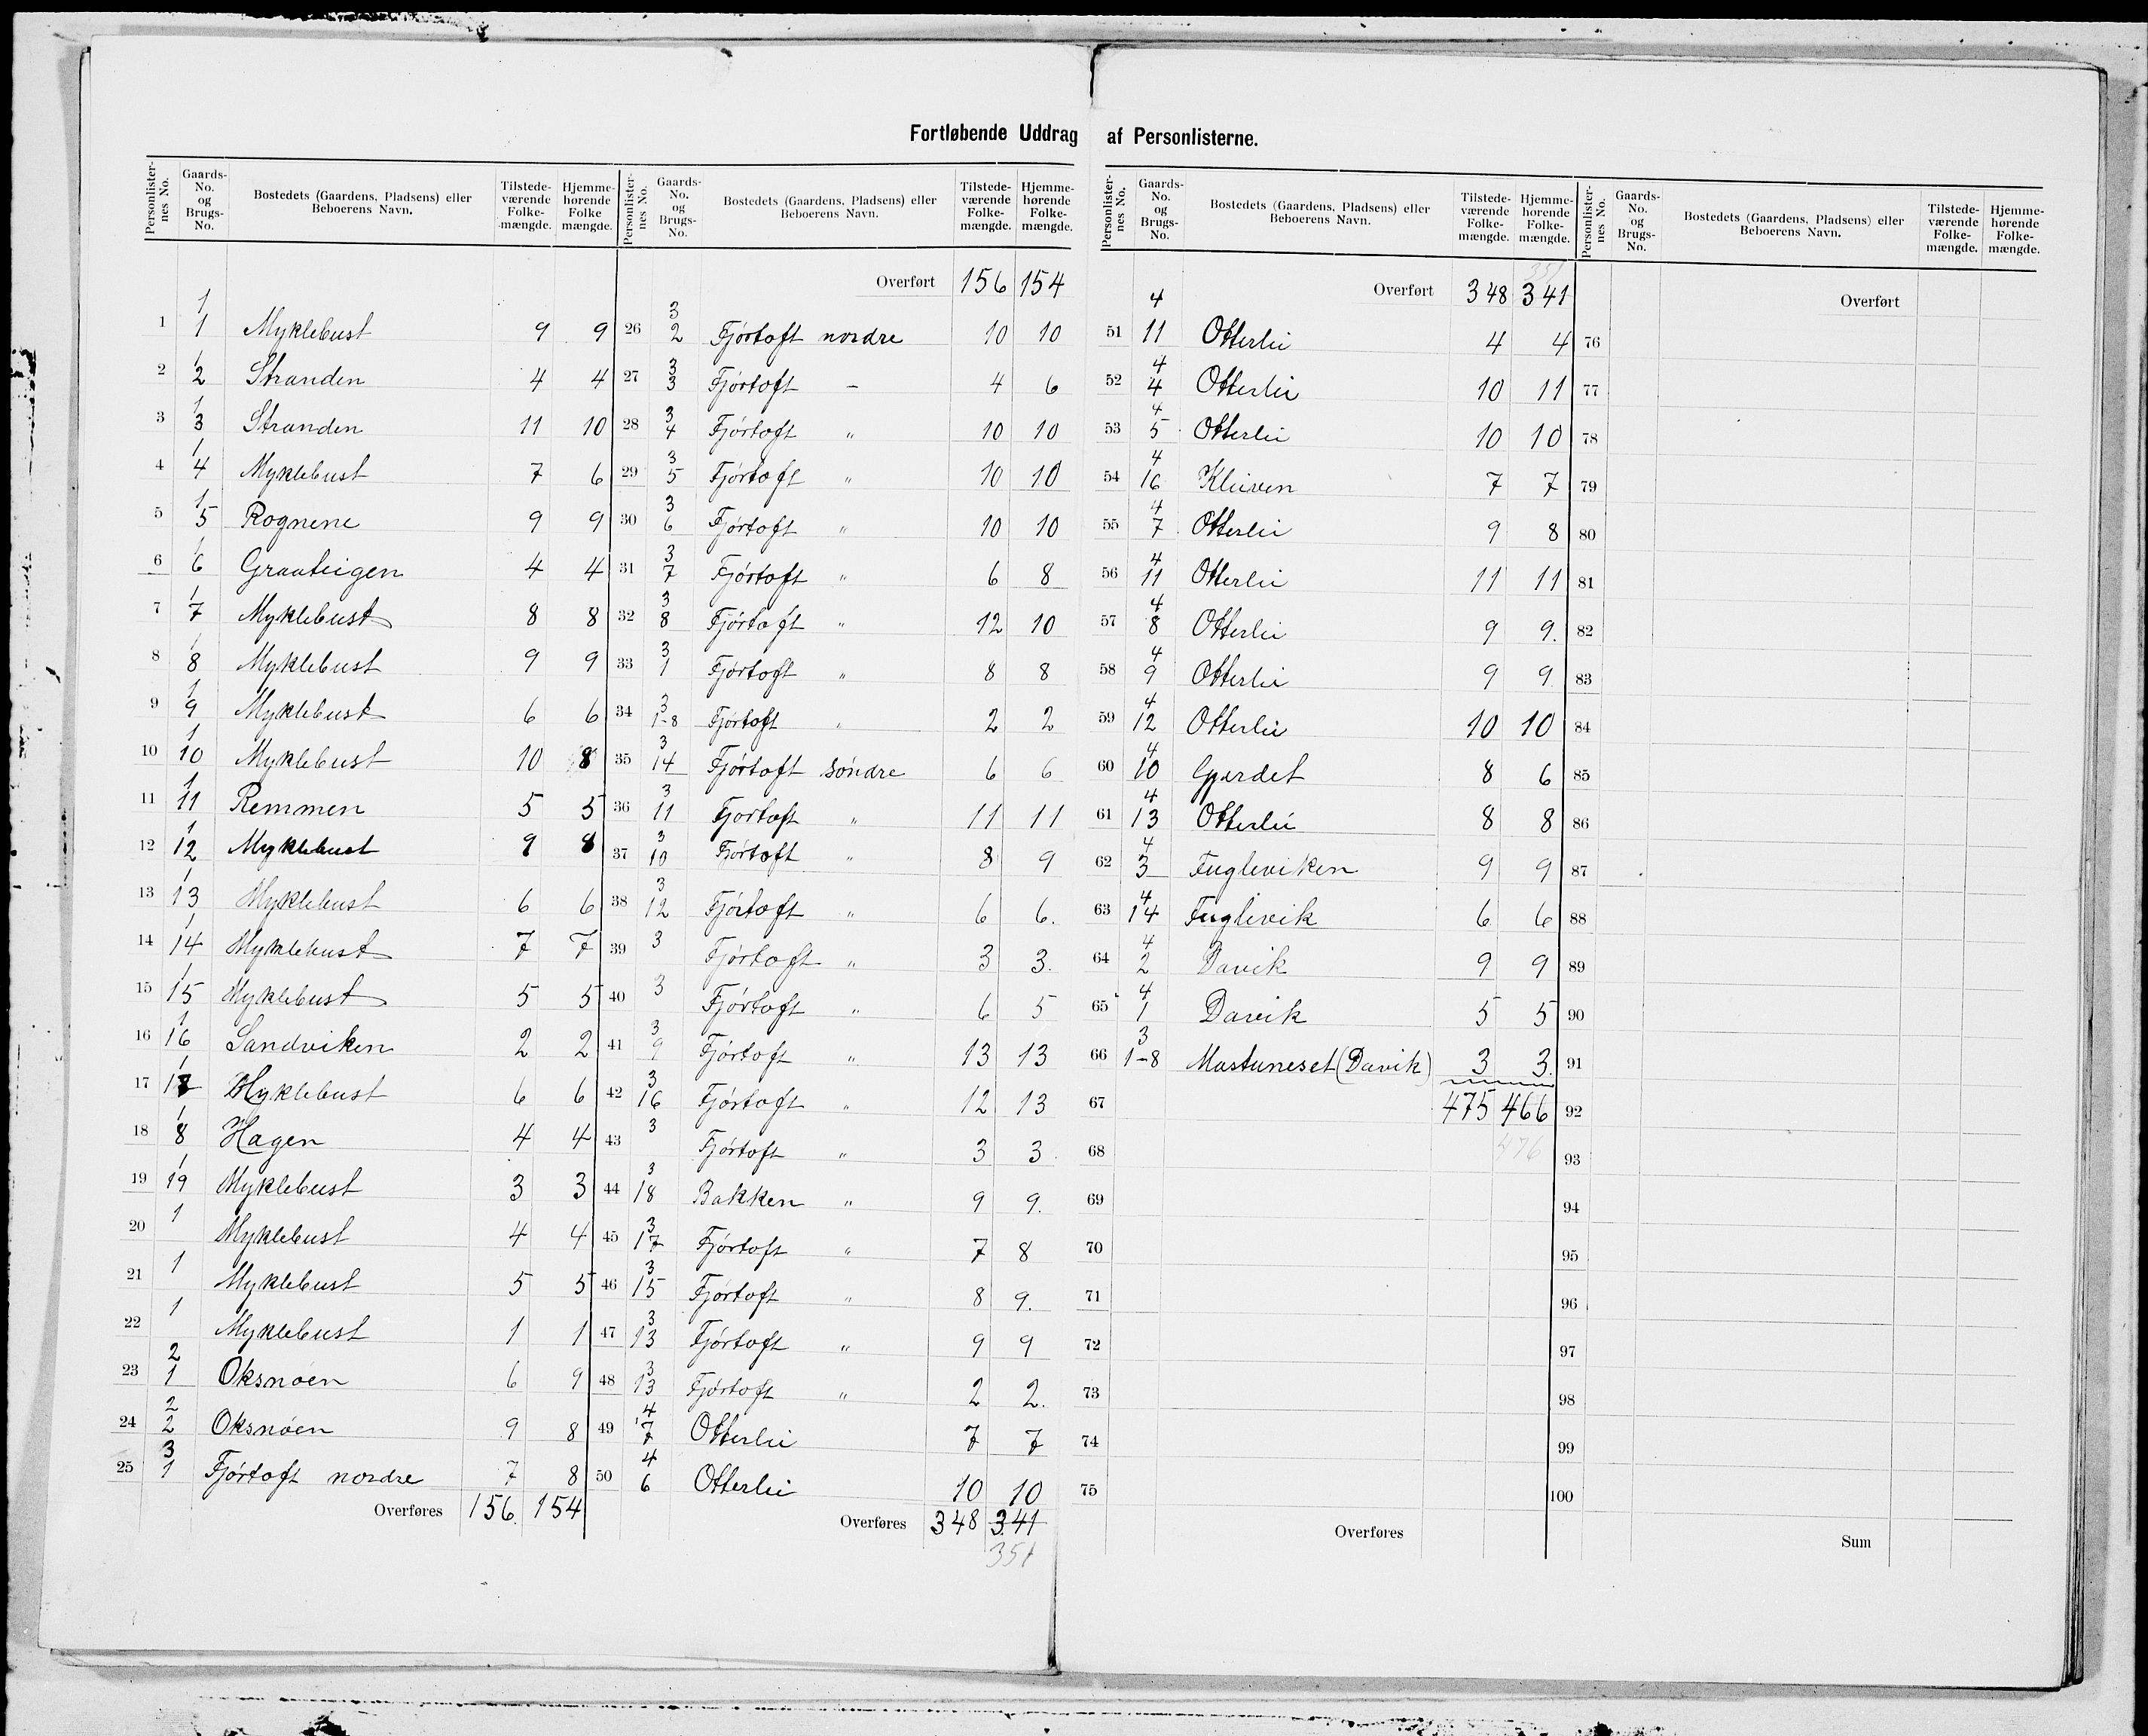 Fortløbende Uddrag af Personlisterne.
Personlister-nes No. Gaards-No. og Brugs-No. Bostedets (Gaardens, Pladsens) eller Beboerens Navn. Tilstede-værende Folke-mængde. Hjemme-hørende Folke mængde.
1 1/1 Myklebust 9 9
2 1/2 Stranden 4 4
3 1/3 Stranden 11 10
4 1/4 Myklebust 7 6
5 1/5 Rognene 9 9
6 1/6 Grauteigen 4 4
7 1/7 Myklebust 8 8
8 1/8 Myklebust 9 9
9 1/9 Myklebust 6 6
10 1/10 Myklebust 10 8
11 1/11 Remmen 5 5
12 1/12 Myklebust 9 8
13 1/13 Myklebust 6 6
14 1/14 Myklebust 7 7
15 1/15 Myklebust 5 5
16 1/16 Sandviken 2 2
17 1/ Myklebust 6 6
18 1/8 Hagen 4 4
19 1/19 Myklebust 3 3
20 1 Myklebust 4 4
21 1 Myklebust 5 5
22 1 Myklebust 1 1
23 2/1 Oksnøen 6 9
24 2/2 Oksnøen 9 8
25 3/1 Fjørtoft nordre 7 8
Overføres 156 154
Personlister-nes No. Gaards-No. og Brugs-No. Bostedets (Gaardens, Pladsens) eller Beboerens Navn. Tilstede-værende Folke-mængde. Hjemme-hørende Folke-mængde.
Overført 156 154
26 3/2 Fjørtoft nordre 10 10
27 3/3 Fjørtoft – 4 6
28 3/4 Fjørtoft " 10 10
29 3/5 Fjørtoft " 10 10
30 3/6 Fjørtoft " 10 10
31 3/7 Fjørtoft " 6 8
32 3/8 Fjørtoft " 12 10
33 3/1 Fjørtoft " 8 8
34 3/1-8 Fjørtoft " 2 2
35 3/14 Fjørtoft søndre 6 6
36 3/11 Fjørtoft " 11 11
37 3/10 Fjørtoft " 8 9
38 3/12 Fjørtoft " 6 6.
39 3 Fjørtoft " 3 3.
40 3 Fjørtoft " 6 5
41 3/9 Fjørtoft " 13 13
42 3/16 Fjørtoft " 12 13
43 3 Fjørtoft " 3 3
44 3/18 Bakken " 9 9.
45 3/17 Fjørtoft " 7 8
46 3/15 Fjørtoft " 8 9.
47 3/13 Fjørtoft " 9 9
48 3/13 Fjørtoft " 2 2.
49 4/7 Otterlei 7 7
50 4/6 Otterlei 10 10
Overføres 348 341
351
Personlister-nes No. Gaards-No. og Brugs-No. Bostedets (Gaardens, Pladsens) eller Beboerens Navn. Tilstede-værende Folke-mængde. Hjemme-hørende Folke-mængde.
351
Overført 348 341
51 4/11 Otterlei 4 4
52 4/4 Otterlei 10 11
53 4/5 Otterlei 10 10
54 4/16 Kleiven 7 7
55 4/7 Otterlei 9 8
56 4/11 Otterlei 11 11
57 4/8 Otterlei 9 9.
58 4/9 Otterlei 9 9
59 4/12 Otterlei 10 10
60 4/10 Gjerdet 8 6
61 4/13 Otterlei 8 8
62 4/3 Fugleviken 9 9
63 4/14 Fuglevik 6 6
64 4/2 Davik 9 9
65 4/1 Davik 5 5
66 3/1-8 Mastuneset (Davik) 3 3.
67 475 466
68 476
69
70
71
72
73
74
75
Overføres
Personlister-nes No. Gaards-No. og Brugs-No. Bostedets (Gaardens, Pladsens) eller Beboerens Navn. Tilstede-værende Folke-mængde. Hjemme-hørende Folke-mængde.
Overført
76
77
78
79
80
81
82
83
84
85
86
87
88
89
90
91
92
93
94
95
96
97
98
99
100
Sum